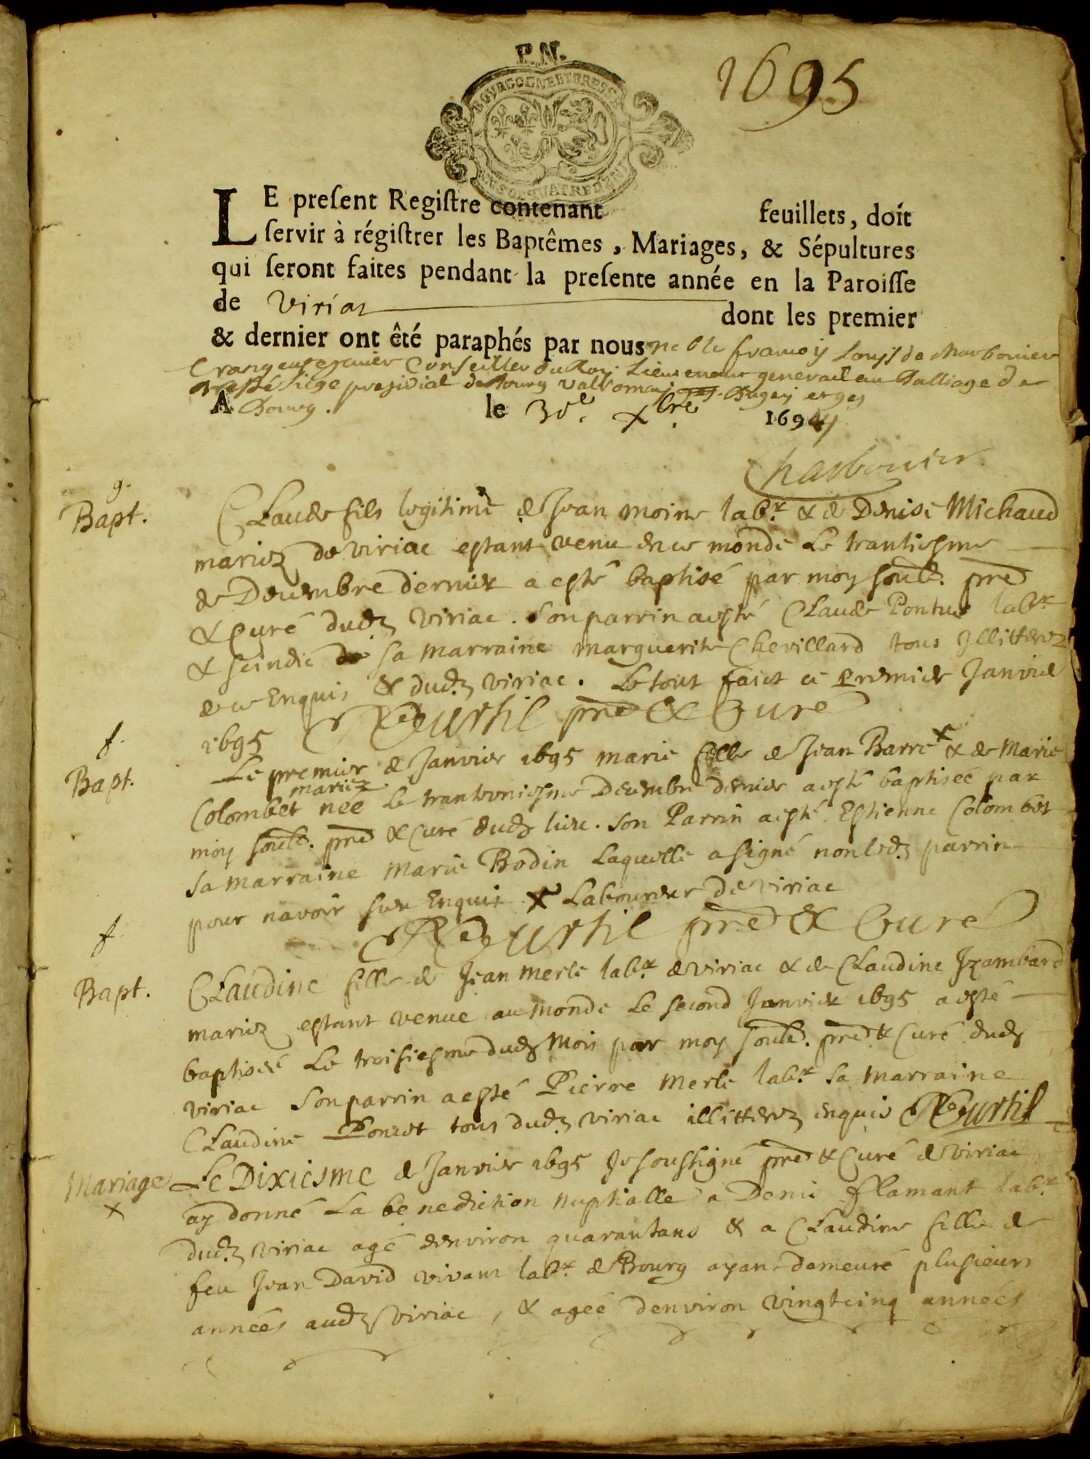 P.N.
1695
BOURGOGNE ET BRESSE
LE preſent Regiſtre contenant feuillets, doit
ſervir à régiſtrer les Baptêmes, Mariages, & Sépultures
qui ſeront faites pendant la preſente année en la Paroiſſe
de Viriat dont les premier
& dernier ont êté paraphés par nous noble françois Louis de Charbonier
Crangeac premier Conseiller du Roy Lieutenant general au Balliage de
Bresse siege presidial de Bourg Valromey Bugey et gex
A Bourg. le 30e. Xbre 1694
Charbonier
g.
Bapt.
CLaude fils legitime de Jean moine labr. & de Denise Michaud
mariez de viriac estant venu en ce monde Le trantiesme
de Decembre dernier a esté baptisé par moy soubs. pre
& Curé dudz viriac. Son parrin a esté CLaude Pontus labr
& scindic sa marraine marguerite Chevillard tous Jllitterez
de ce Enquis & dudz viriac. Le tout faict ce premier Janvier
1695 Curthil pre & Curé
f.
Bapt.
Le premier de Janvier 1695 marie fille de Jean Barret & de Marie
Colombet mariez née Le trante uniesme Decembre dernier a esté baptiseé par
moy soubs. pre & Curé dudz lieu. Son Parrin a esté Estienne Colombet
sa marraine Marie Bodin Laquelle a signé non ledz parrin
pour navoir sceu Enquit X Laboureur de viriac
Curthil pre & Curé
f.
Bapt.
CLaudine fille de Jean merle labr. de viriac & de CLaudine Jzambard
mariez estant venue au monde Le second Janvier 1695 a esté
baptiseé Le troisiesme dudz Mois par moy soubs. pre & Curé dudz
viriac Son parrin a esté Pierre Merle labr. Sa Marraine
CLaudine Poncet tous dudz viriac illitterez enquis Curthil
Mariage
X
Le Dixiesme de Janvier 1695 Je soussigné pre & Curé de viriac
ay donné La benediction nuptialle a Deni fflamant labr.
dudz viriac agé denviron quarantans & a CLaudine fille de
feu Jean David vivant labr. de Bourg ayant demeuré plusieurs
années audz viriac, & agée denviron vingtcinq années